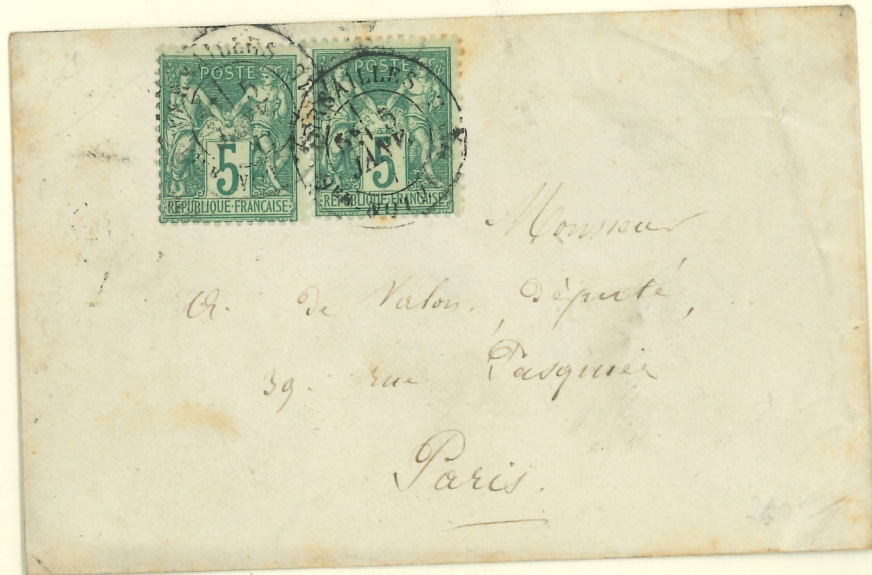 POSTE
5
REPUBLIQUE-FRANÇAISE
POSTE
5
REPUBLIQUE-FRANÇAISE
VERSAILLES
5
JANV.
Monsieur
A. de Valon, Député,
39. rue Pasquier
Paris.